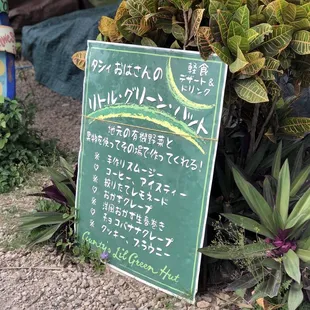 タシィ おばさんの
軽食
デザート&
ドリンク
リトル・グリーン・ハット
地元の有機野菜と
果物を使ってその場で作ってくれる!
※ 手作りスムージー
※ コーヒー アイスティー
※ 絞りたてレモネード
※ おかずクレープ
※ おかず生春巻き
※ チョコバナナクレープ
※ クッキー・ブラウニー
Aunty's Lil Green Hut